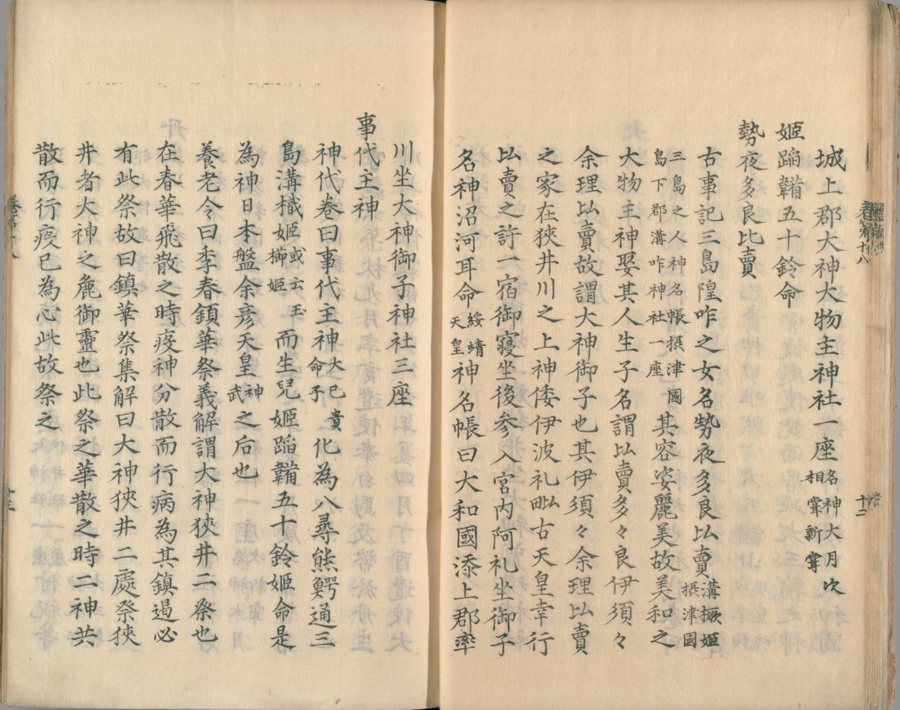 城上郡大神大物主神社一座名神大月次相甞新甞
姫蹈韛五十鈴命
勢夜多良比賣
古事記三島隍咋之女名勢夜多良比賣溝橛姫攝津國
三島之人神名帳摂津國島下郡溝咋神社一座其容姿麗美故美和之
大物主神娶其人生子名謂比賣多々良伊須々
余理比賣故謂大神御子也其伊須々余理比賣
之家在狹井川之上神倭伊波礼毗古天皇幸行
比賣之許一宿御寝坐後参入宮内阿礼坐御子
名神沼河耳命綏靖天皇神名帳曰大和國添上郡率
川坐大神御子神社三座
事代主神
神代巻曰事代主神大已貴命子化為八尋熊鰐通三
島溝樴姫或云玉櫛姫而生兒姫蹈韛五十鈴姫命是
為神日本盤余彦天皇神武之后也
養老令曰季春鎮華祭義解謂大神狹井二祭也
在春華飛散之時疫神分散而行病為其鎮遏必
有此祭故曰鎮華祭集解曰大神狹井二處祭狹
井者大神之麁御靈也此祭之華散之時二神共
散而行疫已為心此故祭之